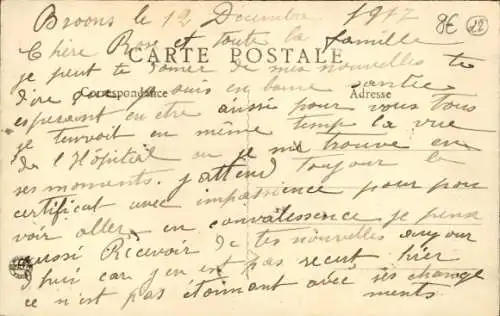 Broons le 12 Décembre 1917
8€ 22
Chère Rose et toute la famille
CARTE POSTALE
je peut te doner de mes nouvelles te
dire que je suis en bonne santée
Correspondance
Adresse
esperant en etre aussie pour vous tous
je tenvoit en même temp la vue
de l'Hôpital ou je me trouve en
ses moments. j'attend toujour le
certificat avec impassience pour pou
voir aller en convalessence je pense
aussi Recevoir de tes nouvelles aujour
d'hui car j'en est pas recut hier
ce n'est pas étoinant avec ses change
ments.